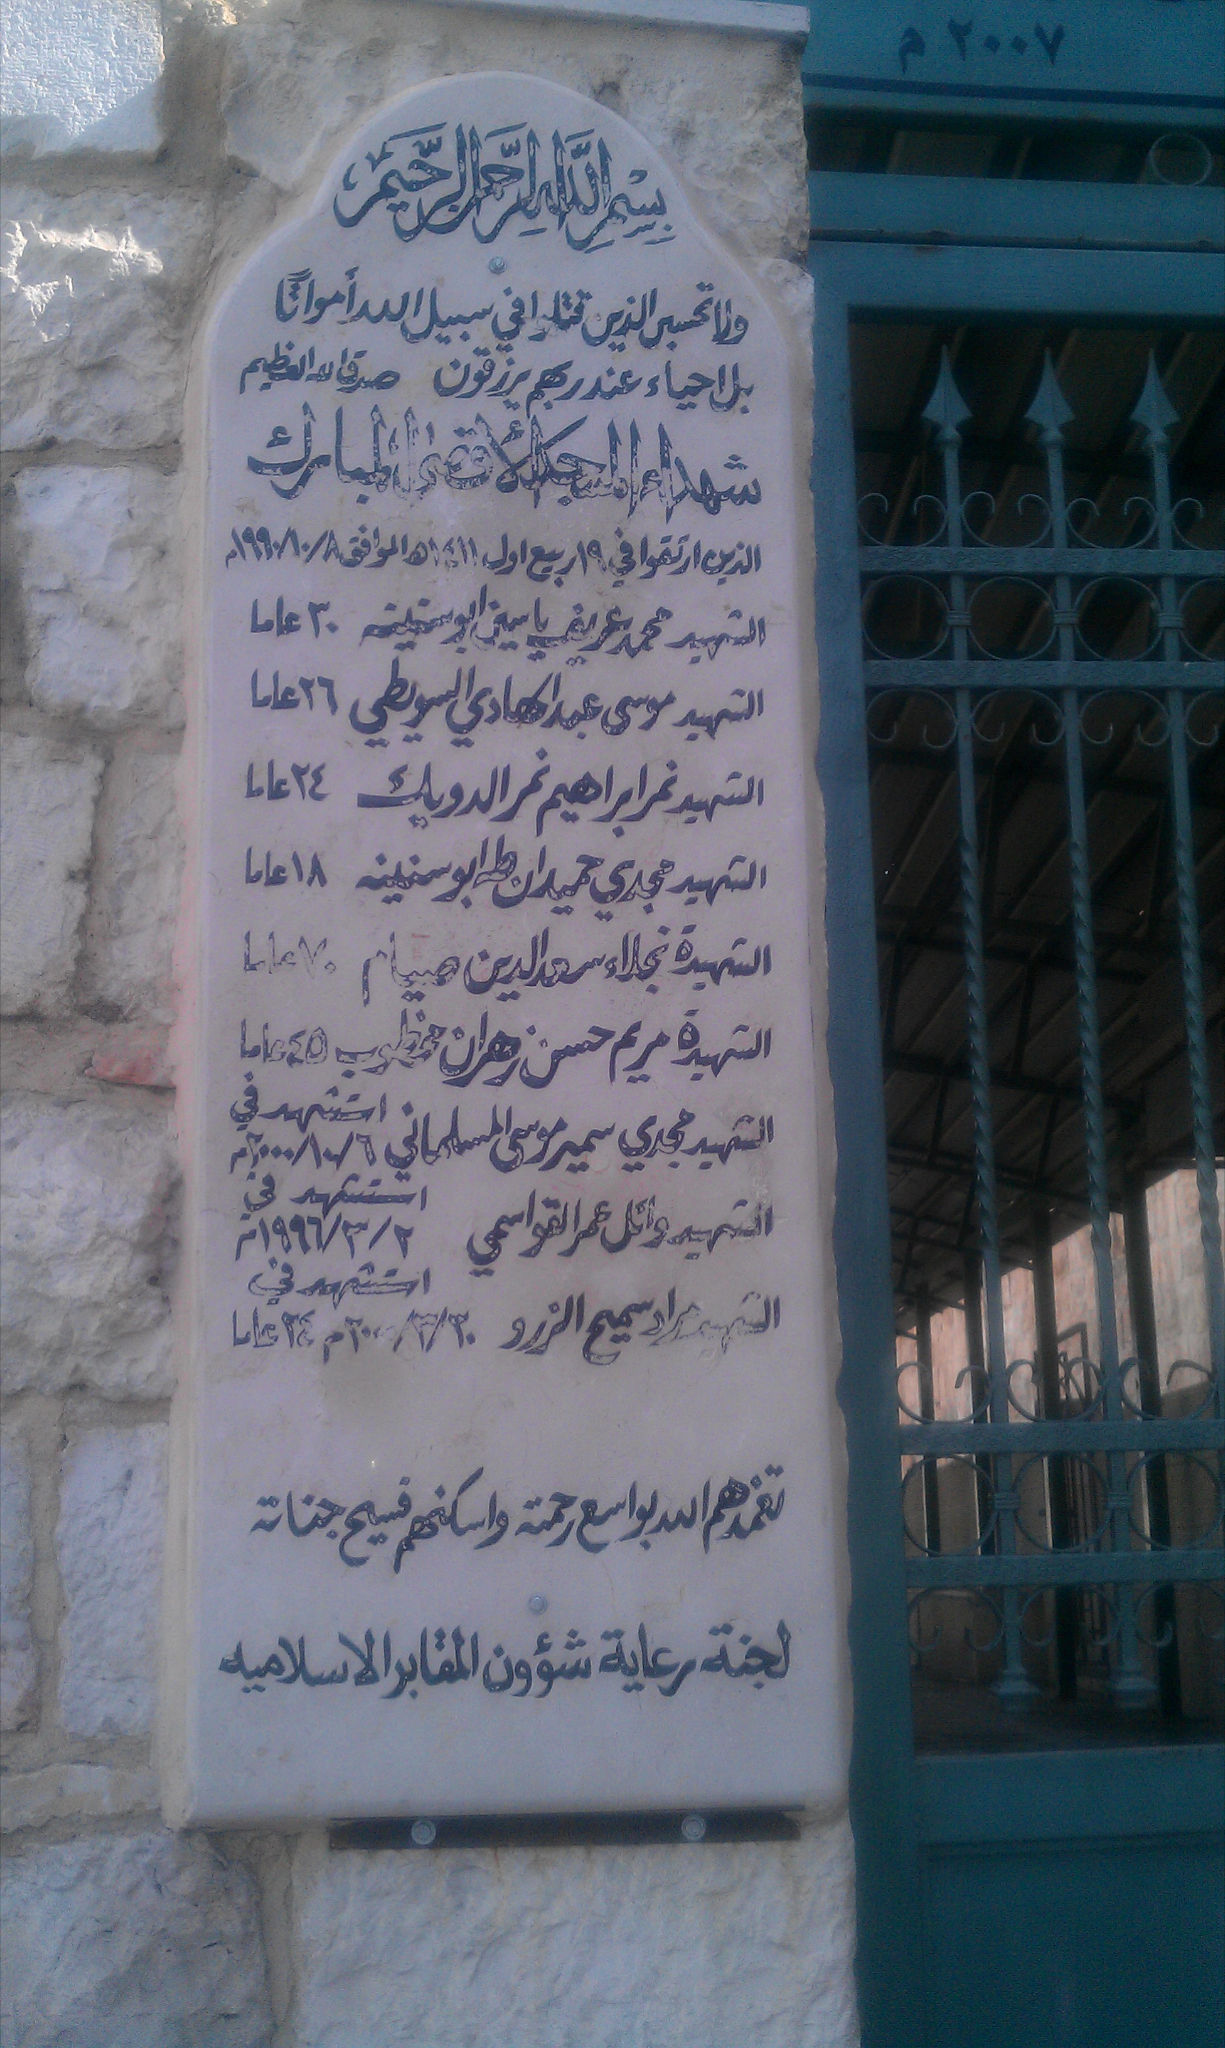 ٢٠٠٧ م
بِسْمِ اللَّهِ الرَّحْمَنِ الرَّحِيمِ
ولا تحسبن الذين قتلوا في سبيل الله أمواتًا
بل احياء عند ربهم يرزقون صدق الله العظيم
شهداء المسجد الأقصى المبارك
الذين ارتقوا في ١٩ ربيع اول ١٤١١ه الموافق ١٩٩٠/١٠/٨م
الشهيد محمد عريف ياسين ابو سنينه ٣٠ عاما
الشهيد موسى عبد الهادي السويطي ٢٦ عاما
الشهيد نمر ابراهيم نمر الدويك ٢٤ عاما
الشهيد مجدي حميدان طه ابو سنينه ١٨ عاما
الشهيدة نجلاء سعد الدين صيام ٧٠ عاما
الشهيدة مريم حسن زهران مخطوب ٤٥ عاما
الشهيد مجدي سمير موسى المسلماني استشهد في ٢٠٠٠/١٠/٦م
الشهيد وائل عمر القواسمي استشهد في ١٩٩٦/٣/٢م
الشهيد مراد سميح الزرو استشهد في ٢٤ عاما
تغمدهم الله بواسع رحمته واسكنهم فسيح جناته
لجنة رعاية شؤون المقابر الاسلاميه